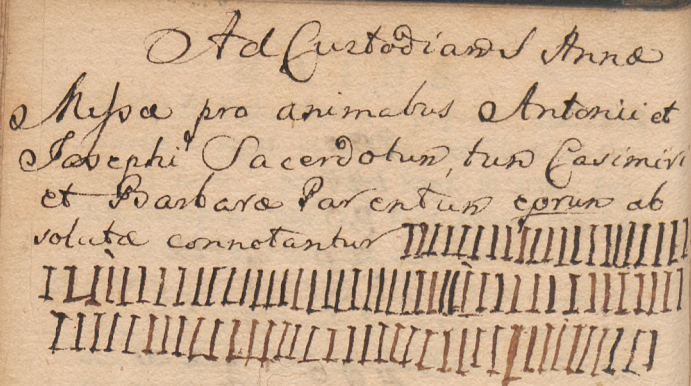 Ad Custodiam S Annæ
Missæ pro animabus Antonii et
Josephi Sacerdotum, tum Casimiri
et Barbaræ Parentum eorum ab
solutæ connotantur